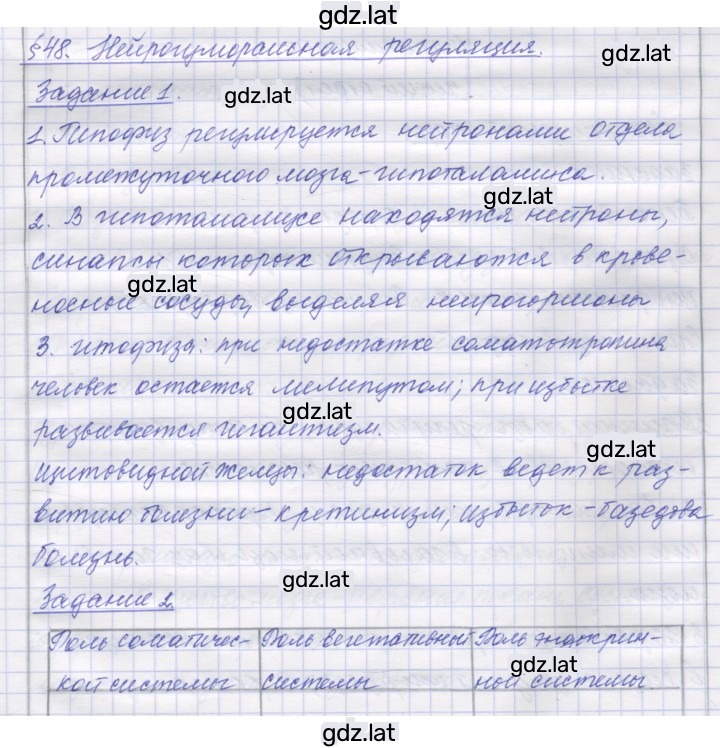 gdz.lat
§48. Нейрогуморальная регуляция.
gdz.lat
Задание 1.
gdz.lat
1. Гипофиз регулируется нейронами отдела
промежуточного мозга - гипоталамуса.
gdz.lat
2. В гипоталамусе находятся нейроны,
синапсы которых открываются в крове-
gdz.lat
носные сосуды, выделяя нейрогормоны
3. гипофиза: при недостатке соматотропина
человек остается лилипутом; при избытке
gdz.lat
развивается гигантизм.
gdz.lat
Щитовидной железы: недостаток ведет к раз-
витию болезни - кретинизм; избыток - базедова
болезнь.
gdz.lat
Задание 2.
Роль соматичес- Роль вегетативный Роль эндокрин-
gdz.lat
кой системы системы ной системы.
gdz.lat